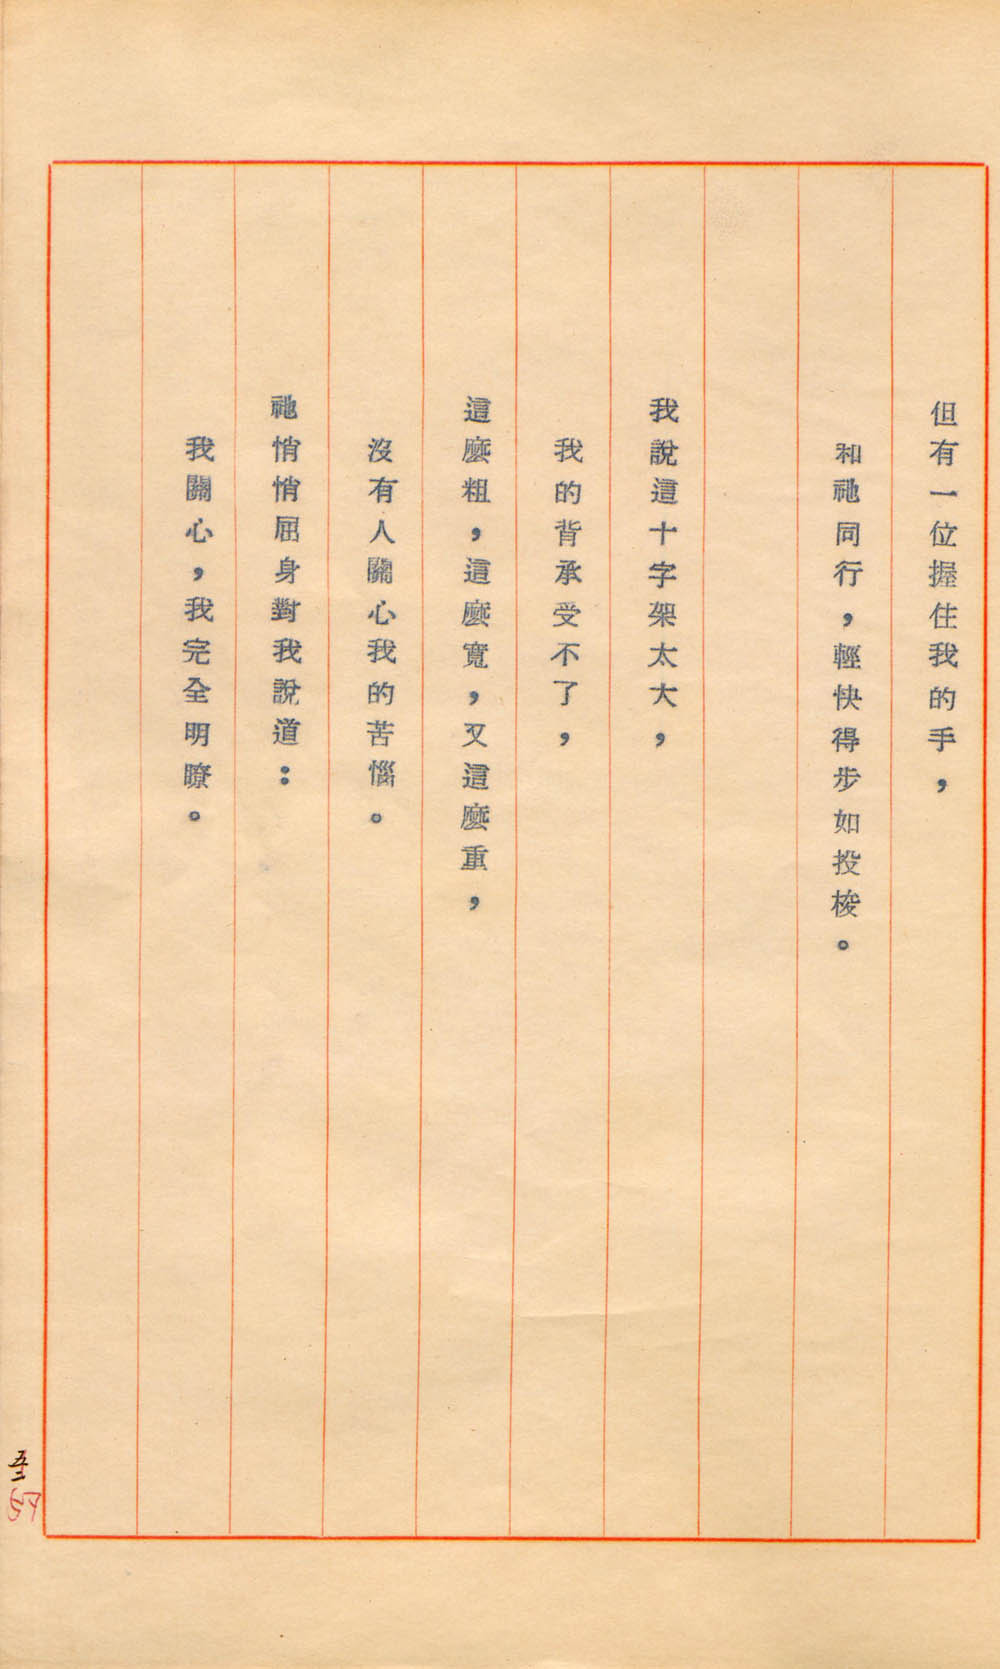 但有一位握住我的手，
和祂同行，輕快得步如投梭。
我說這十字架太大，
我的背承受不了，
這麼粗，這麼寬，又這麼重，
沒有人關心我的苦惱。
祂悄悄屈身對我說道：
我關心，我完全明瞭。